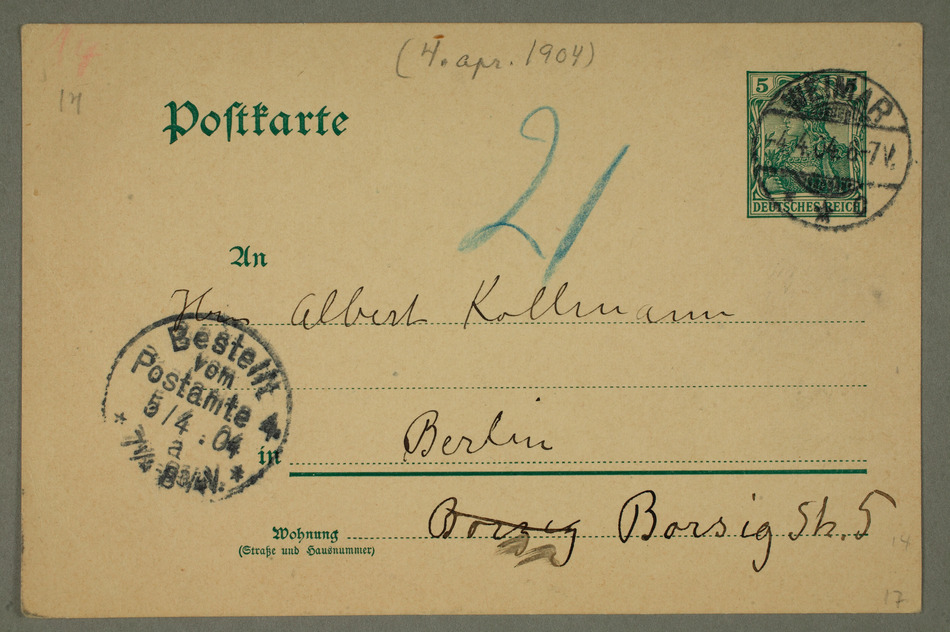 (4. apr. 1904)
14
17
Postkarte
21
5 5
WEIMAR
-4.4.04.6-7V.
DEUTSCHES REICH
An
Herrn Albert Kollmann
Bestellt
vom
Postamte 4
5/4 : 04
a
in Berlin
Wohnung Borzig Borsig Str. 5
(Straße und Hausnummer)
14
17